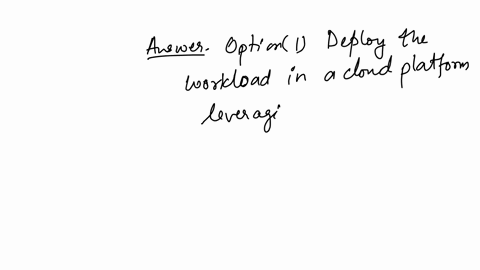 Answer. Option(1) Deploy the
workload in a cloud platform
leveragi